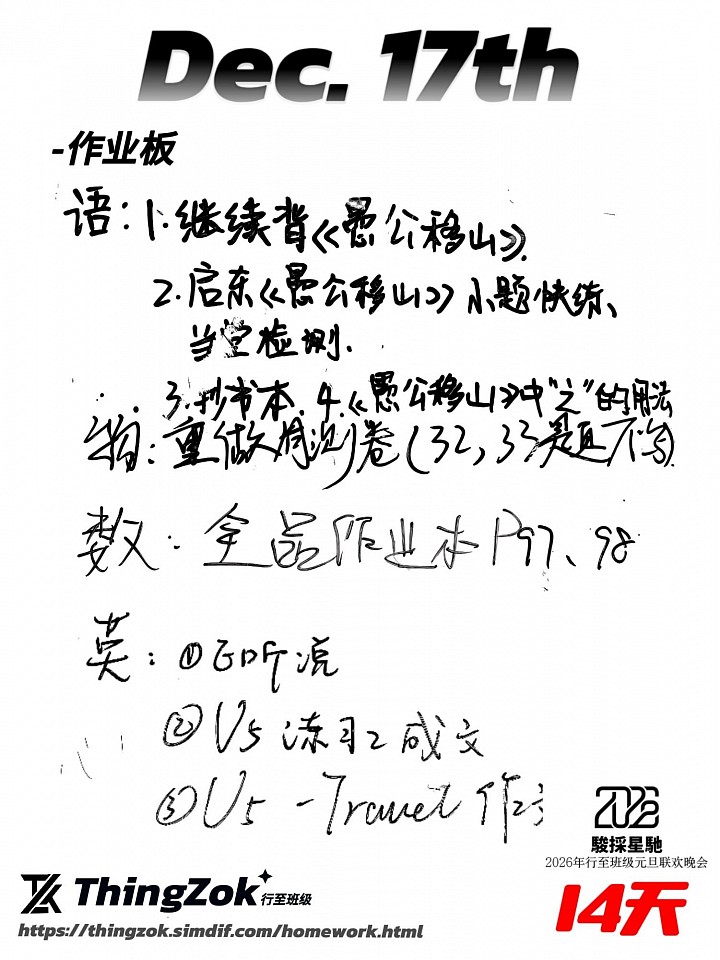 Dec. 17th
-作业板
语：1.继续背《愚公移山》.
2.启东《愚公移山》小题快练、
当堂检测.
3.抄书本. 4.《愚公移山》中“之”的用法
物：重做周测卷(32,33题不写)
数：全品作业本P97、98
英：①听说
②U5 练习2成文
③U5 -Travel 作
2026
駿採星馳
2026年行至班级元旦联欢晚会
ThingZok 行至班级
14天
https://thingzok.simdif.com/homework.html